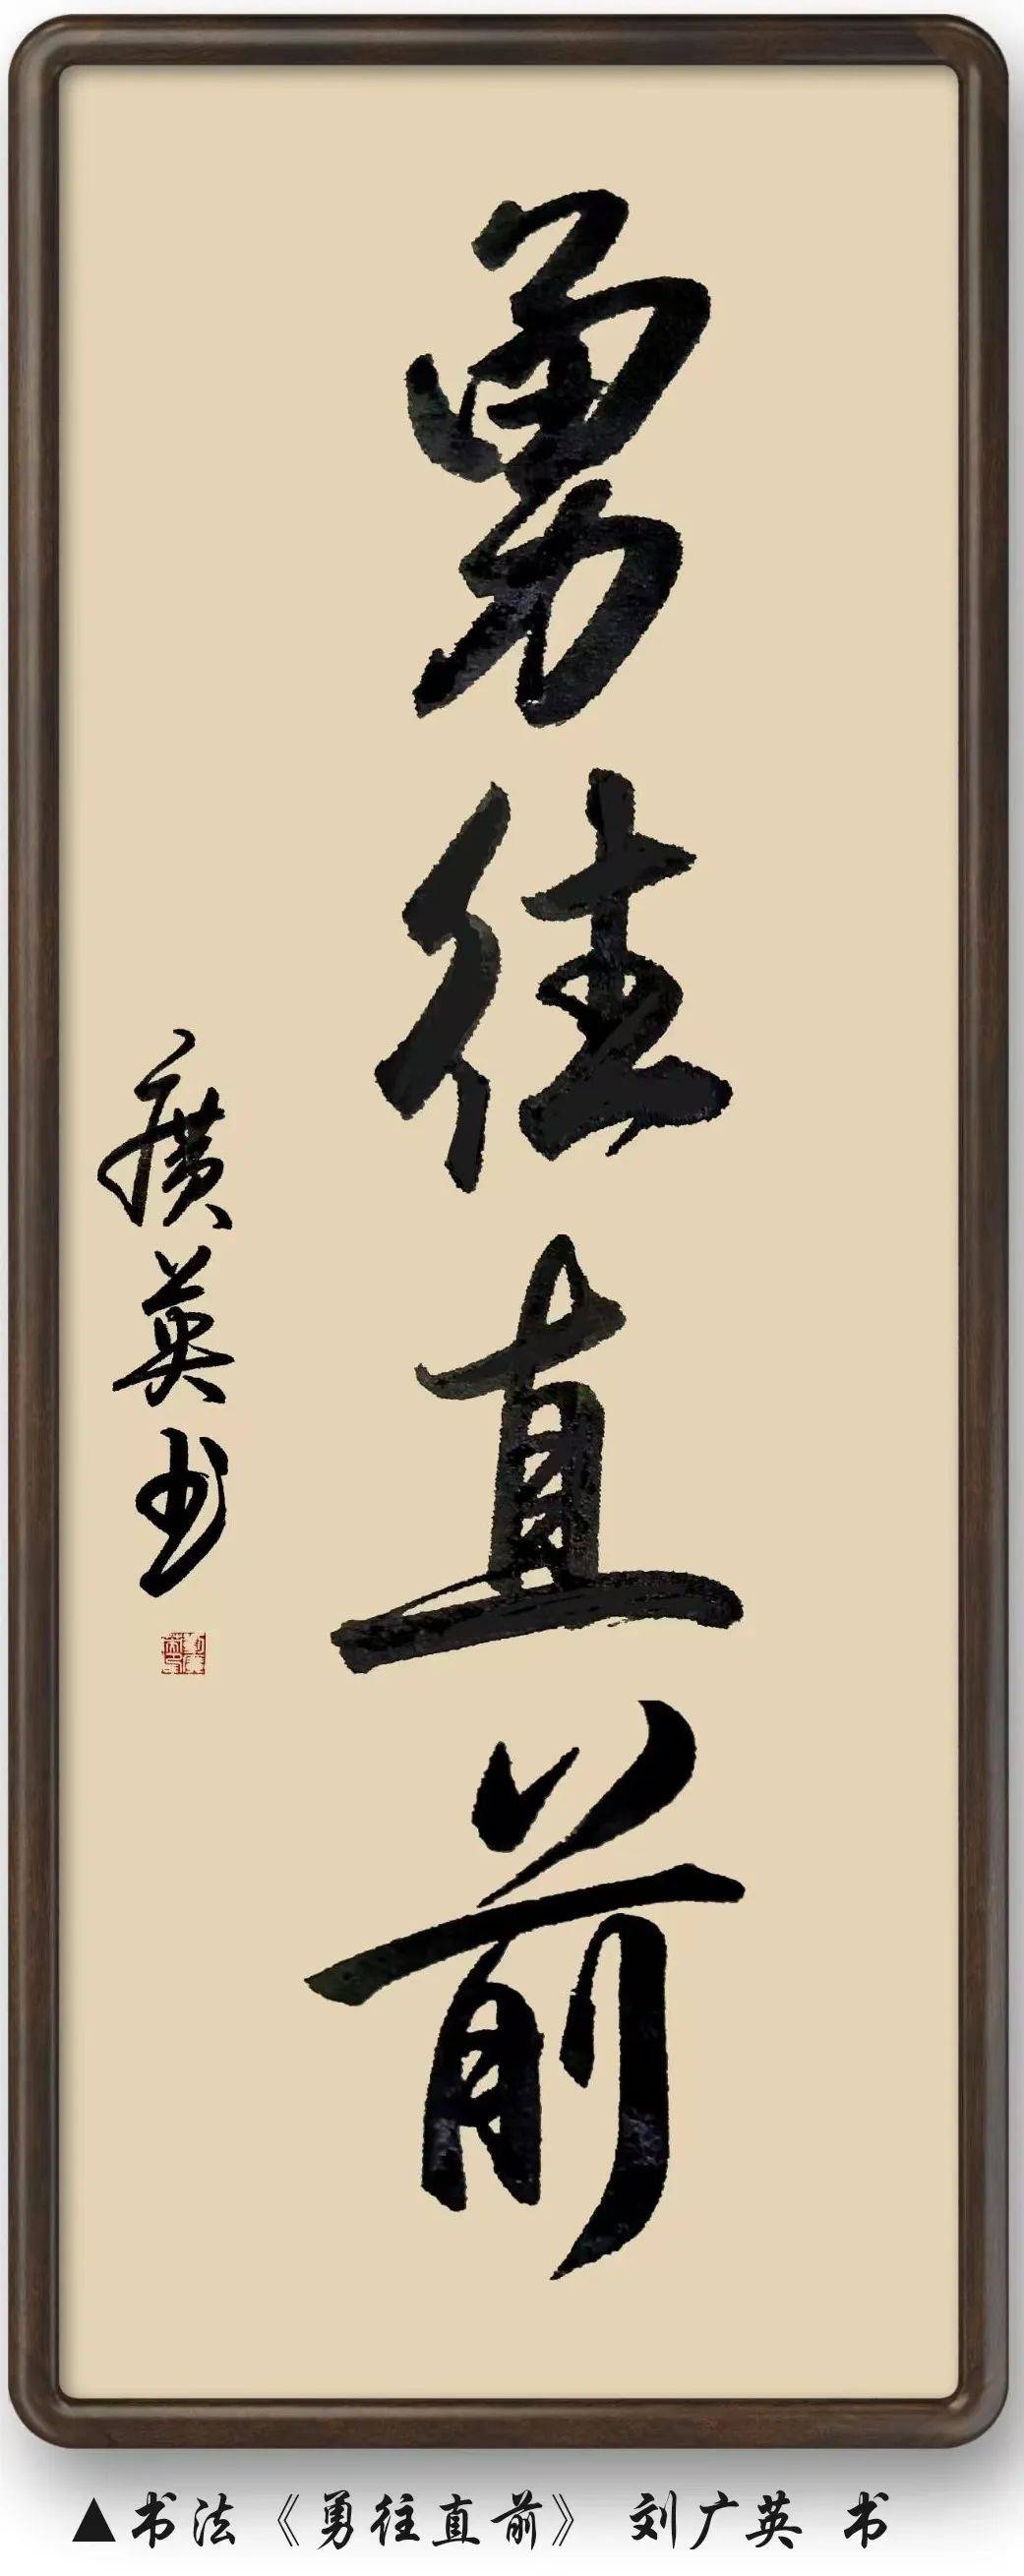 勇往直前
廣英书
▲书法《勇往直前》 刘广英 书